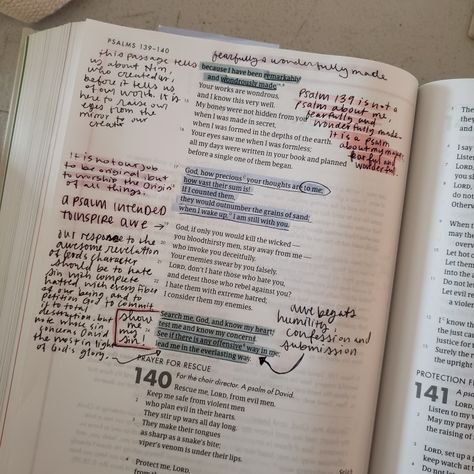 PSALMS 139–140
fearfully & wonderfully made
this passage tells
us about Him,
who created us,
before it tells us
of our worth. It is
here to raise our
eyes from the
mirror to our
creator
because I have been remarkably
and wondrously made.
Your works are wondrous,
and I know this very well.
15 My bones were not hidden from you
when I was made in secret,
when I was formed in the depths of the earth.
16 Your eyes saw me when I was formless;
all my days were written in your book and planned
before a single one of them began.
Psalm 139 is not a
psalm about me,
fearfully and
wonderfully made.
it is a psalm
about my maker,
fearful and
wonderful.
It is not our job
to be original, but
to worship the Origin
of all things.
A PSALM INTENDED
TO INSPIRE AWE →
our response to the
awesome revelation
of God's character
should be to hate
sin with complete
hatred, with every fiber
of our being and to
petition God to commit
it to total
destruction. but
note whose sin
concerns David
the most in light
of God's glory...
17 God, how precious your thoughts are to me;
how vast their sum is!
18 If I counted them,
they would outnumber the grains of sand;
when I wake up, I am still with you.
19 God, if only you would kill the wicked —
you bloodthirsty men, stay away from me —
20 who invoke you deceitfully.
Your enemies swear by you falsely.
21 LORD, don't I hate those who hate you,
and detest those who rebel against you?
22 I hate them with extreme hatred;
I consider them my enemies.
show
me
my
sin!
23 Search me, God, and know my heart;
test me and know my concerns.
24 See if there is any offensive way in me;
lead me in the everlasting way.
awe begets
humility,
confession and
submission
PRAYER FOR RESCUE
140 For the choir director. A psalm of David.
1 Rescue me, LORD, from evil men.
Keep me safe from violent men
2 who plan evil in their hearts.
They stir up wars all day long.
3 They make their tongues
as sharp as a snake's bite;
viper's venom is under their lips.
Selah
4 Protect me, LORD,
PROTECTION F
141